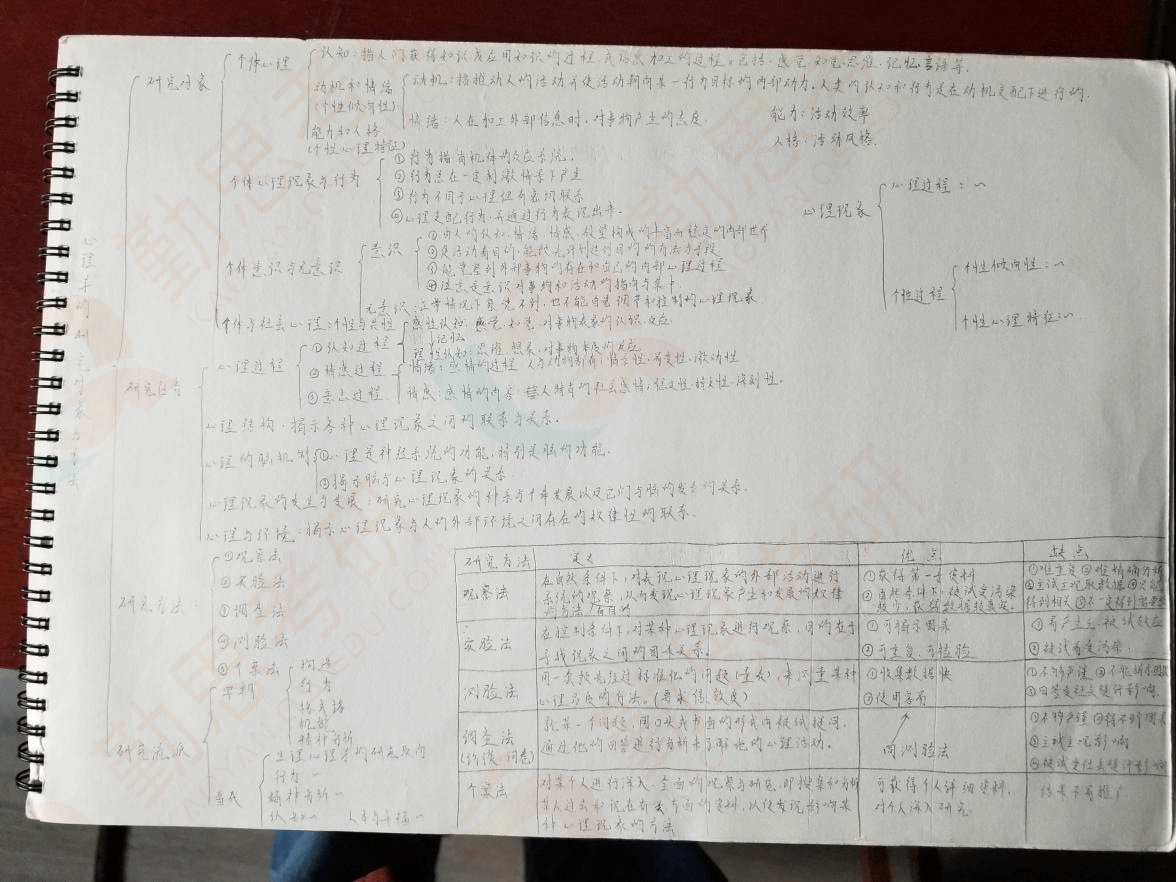 心理学的研究对象与方法
研究对象
个体心理
认知：指人们获得知识或应用知识的过程，或信息加工的过程。包括：感觉、知觉、思维、记忆、言语等。
动机和情绪
(个性倾向性)
动机：指推动人的活动并使活动朝向某一行为目标的内部动力。人类的认知和行为是在动机支配下进行的。
情绪：人在加工外部信息时，对事物产生的态度。
能力和人格
(个性心理特征)
能力：活动效率
人格：活动风格.
个体心理现象与行为
①行为指有机体的反应系统。
②行为总在一定刺激情景下产生
③行为不同于心理但有密切联系
④心理支配行为，并通过行为表现出来。
心理现象
心理过程：～
个性过程
个性倾向性：～
个性心理特征：～
个体意识与无意识
意识
①由人的认知、情绪、情感、欲望构成的丰富而稳定的内部世界
②是活动有目的，能预先计划达到目的的方法与手段
③能觉察到外部事物的存在和自己的内部心理过程
④注意是意识对事物和活动的指向与集中.
无意识：正常情况下自觉不到，也不能自觉调节和控制的心理现象
个体与社会心理：个性与共性
研究任务
心理过程
①认知过程
感性认知：感觉、知觉，对事物表象的认识、反应.
记忆
理性认知：思维、想象，对事物本质的反应
②情感过程
情绪：感情的过程，人与动物都有；情景性、易变性、激动性
情感：感情的内容：人特有的社会感情；稳定性、持久性、深刻性。
③意志过程
心理结构：揭示各种心理现象之间的联系与关系。
心理的脑机制
①心理是神经系统的功能，特别是脑的功能.
②揭示脑与心理现象的关系.
心理现象的发生与发展：研究心理现象的种系与个体发展以及它们与脑的发育的关系.
心理与环境：揭示心理现象与人的外部环境之间存在的规律性的联系.
研究方法：
①观察法
②实验法
③调查法
④测验法
⑤个案法
研究流派
早期
构造
行为
格式塔
机能
精神分析
当代
生理心理学的研究取向
行为～
精神分析～
认知～
人本与～
研究方法 定义 优点 缺点
观察法
在自然条件下，对表现心理现象的外部活动进行
系统的观察，从而发现心理现象产生和发展的规律
的方法/有目的
①获得第一手资料
②自然条件下，被试受污染
较少，获得数据较真实.
①难重复 ②难精确分析
③主试主观取数据
实验法
在控制条件下，对某种心理现象进行观察，目的在于
寻找现象之间的因果关系。
①可揭示因果
②可重复、可检验
①易产生主、被试效应
②被试易受污染.
测验法
用一套预先经过标准化的问题(量表)，来测量某种
心理品质的方法。(要求信、效度)
①收集数据快
②使用容易
①不够严谨
调查法
(访谈、问卷)
就某一个问题，用口头或书面的形式向被试提问，
通过他的回答进行分析来了解他的心理活动。
同测验法
①不够严谨 ②得不到因果
③主试主观影响
个案法
对某个人进行深入、全面的观察与研究，即搜集和分析
某人过去和现在有关方面的资料，以便发现影响某
种心理现象的方法
可获得个人详细资料，
对个人深入研究.
结果不易推广
勤思考研
KAOYANQINSIEDU.COM